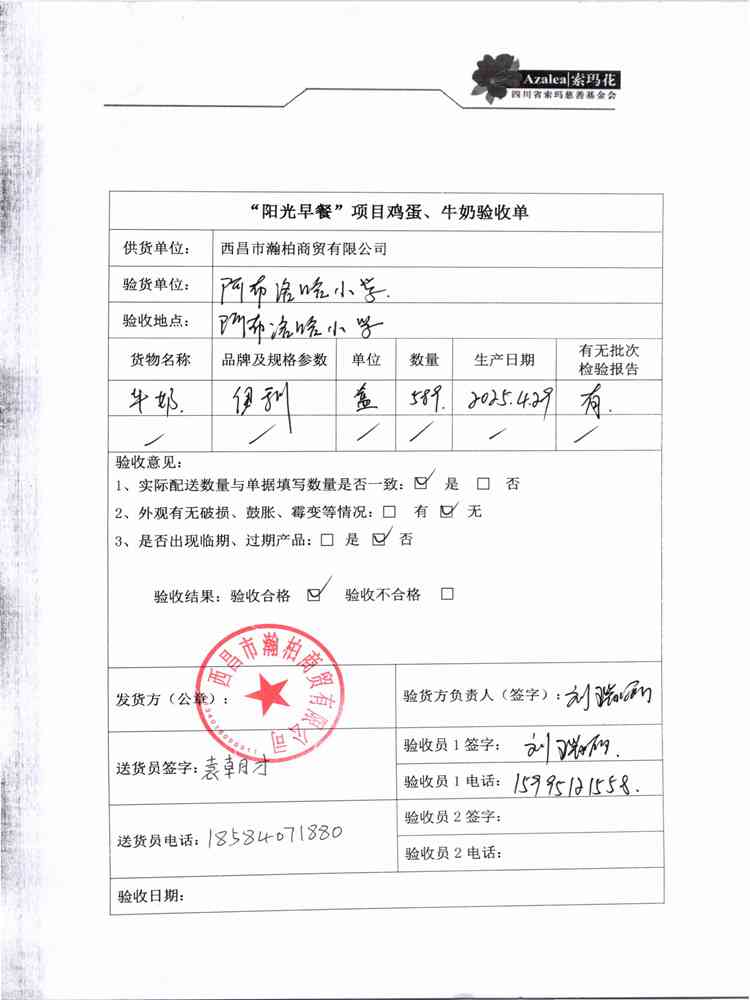 Azalea|索玛花
四川省索玛慈善基金会
“阳光早餐”项目鸡蛋、牛奶验收单
供货单位： 西昌市瀚柏商贸有限公司
验货单位： 阿布洛哈小学.
验收地点： 阿布洛哈小学
货物名称 品牌及规格参数 单位 数量 生产日期 有无批次检验报告
牛奶. 伊利 盒 589. 2025.4.29 有.
验收意见：
1、实际配送数量与单据填写数量是否一致：☑ 是 □ 否
2、外观有无破损、鼓胀、霉变等情况：□ 有 ☑ 无
3、是否出现临期、过期产品：□ 是 ☑ 否
验收结果：验收合格 ☑ 验收不合格 □
西昌市瀚柏商贸有限公司
发货方（公章）：
验货方负责人（签字）：刘
送货员签字：袁朝才
验收员 1 签字： 刘
验收员 1 电话： 15995121558.
送货员电话：18584071880
验收员 2 签字：
验收员 2 电话：
验收日期：